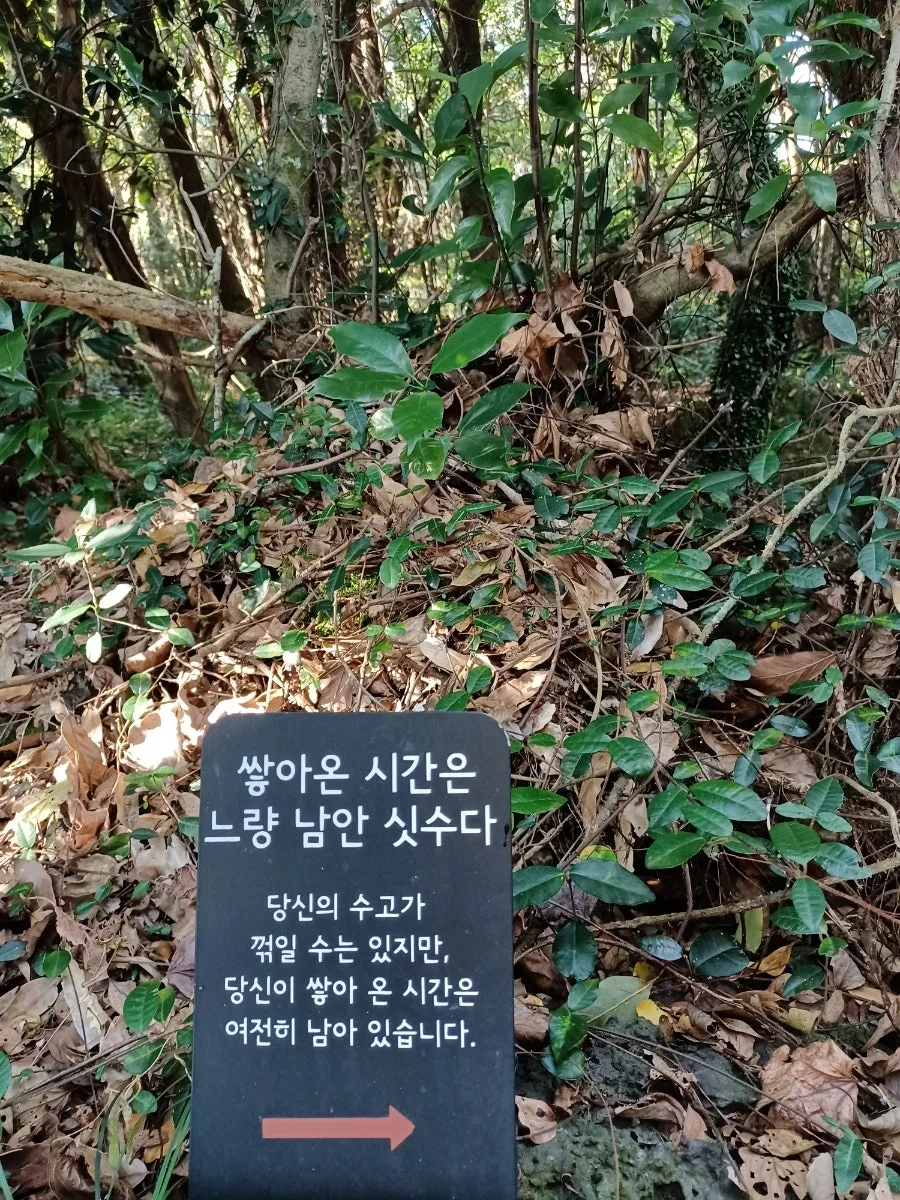 쌓아온 시간은
느량 남안 싯수다
당신의 수고가
꺾일 수는 있지만,
당신이 쌓아 온 시간은
여전히 남아 있습니다.